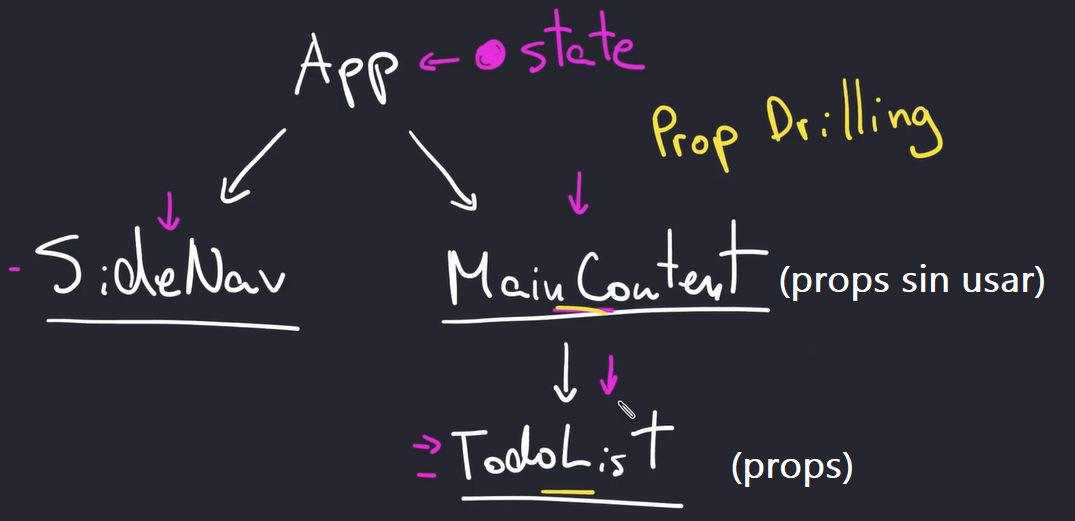 App ← state
Prop Drilling
SideNav
MainContent (props sin usar)
TodoList (props)